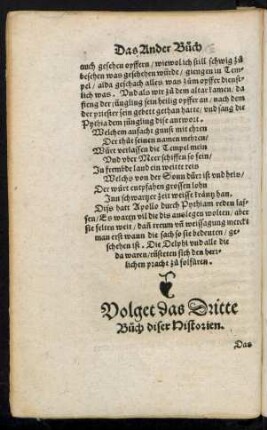 Das Ander Bůch
auch gesehen opffern/ wiewol ich still schwig zů
besehen was geschehen würde/ giengen in Tem-
pel/ alda geschach alles was zům opffer dienst-
lich was. Vnd als wir zů dem altar kamen/ da
fieng der jüngling sein heilig opffer an/ nach dem
der priester sein gebett gethan hatte/ vnd sang die
Pythia dem jüngling dise antwort.
Welchem anfacht gnust mit ehren
Der thůt seinen namen mehren/
Würt verlassen die Tempel mein
Vnd vber Meer schiffen so fein/
In frembde land ein weitte reis
Welchs von der Sonn dürr ist vnd heis/
Der würt entpfahen grossen lohn
Inn schwartzer zeit weisse kräntz han.
Diss hatt Apollo durch Pythiam reden las-
sen/ Es waren vil die dis auslegen wolten/ aber
sie felten weit/ dañ treum vñ weissagung merckt
man erst wann die sach so sie bedeuten/ ge-
schehen ist. Die Delphi vnd alle die
da waren/ rüsteten sich den herr-
lichen pracht zů folfüren.
Volget das Dritte
Bůch diser Historien.
Das